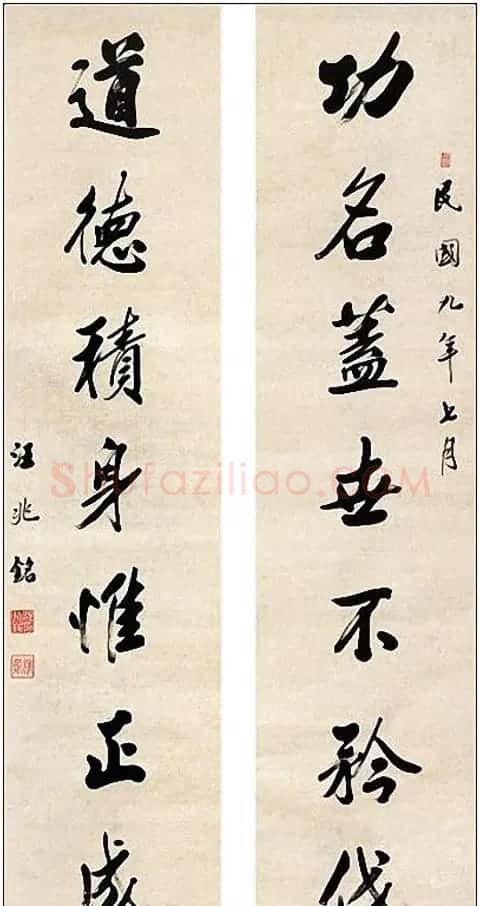 民國九年七月
功名蓋世不矜伐
道德積身惟正
汪兆銘
Shufaziliao.com